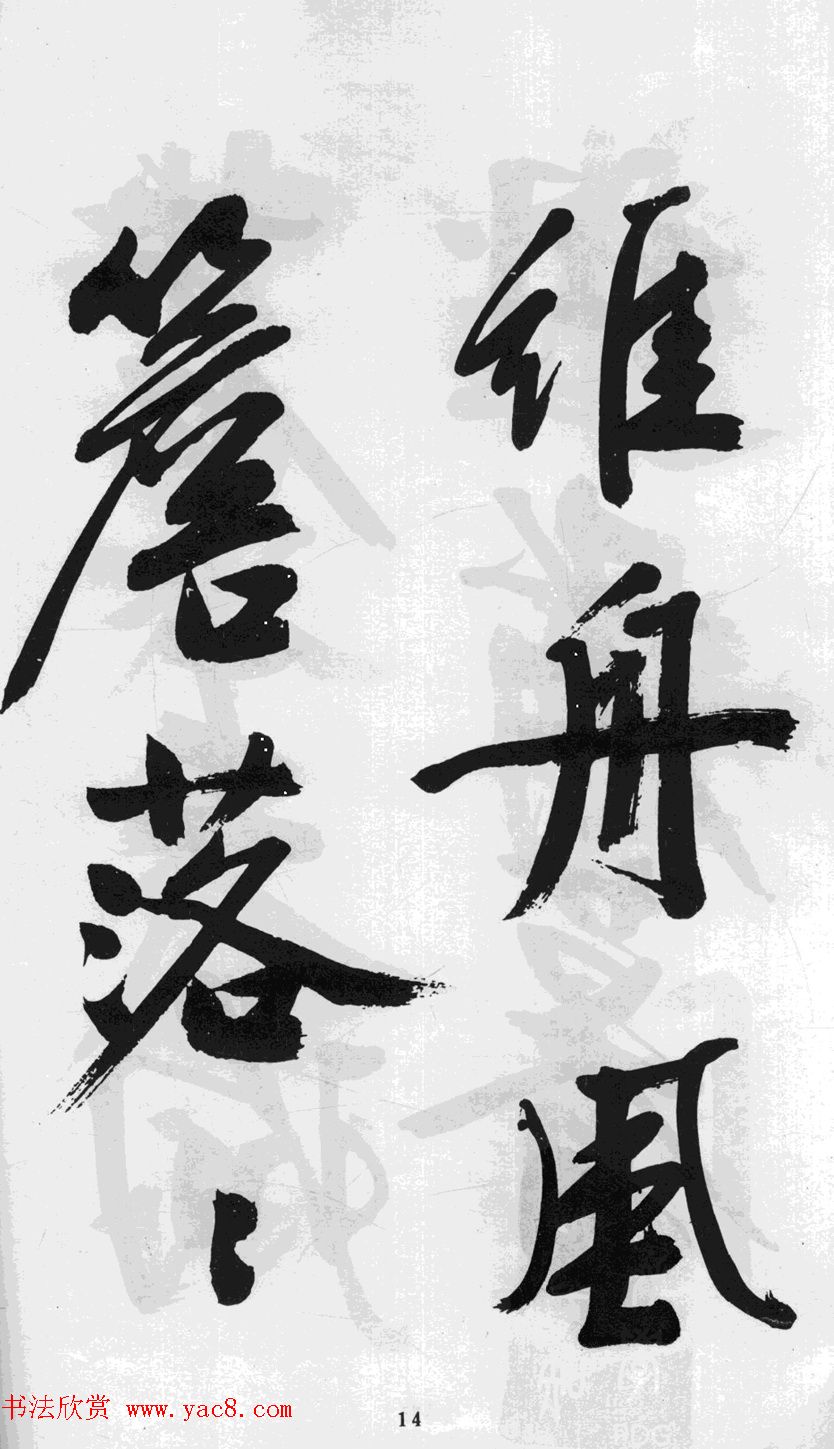 維舟風
簷落〻
14
书法欣赏 www.yac8.com